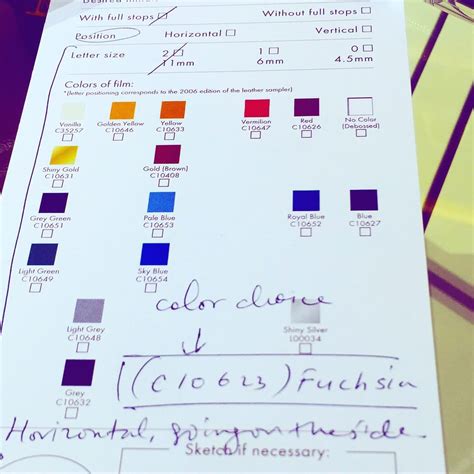 With full stops ☐ Without full stops ☐
Position Horizontal ☐ Vertical ☐
Letter size 2 ☐ 1 ☐ 0 ☐
11mm 6mm 4.5mm
Colors of film:
*(letter positioning corresponds to the 2006 edition of the leather sampler)
Vanilla Golden Yellow Yellow Vermilion Red No Color (Debossed)
C35257 C10646 C10633 C10647 C10626
Shiny Gold Gold (Brown)
C10631 C10408
Grey Green Pale Blue Royal Blue Blue
C10651 C10653 C10652 C10627
Light Green Sky Blue
C10649 C10654
color choice
Light Grey Shiny Silver
C10648 L00034
(C10623) Fuchsia
Grey
C10632
Horizontal, going on the side.
Sketch if necessary: